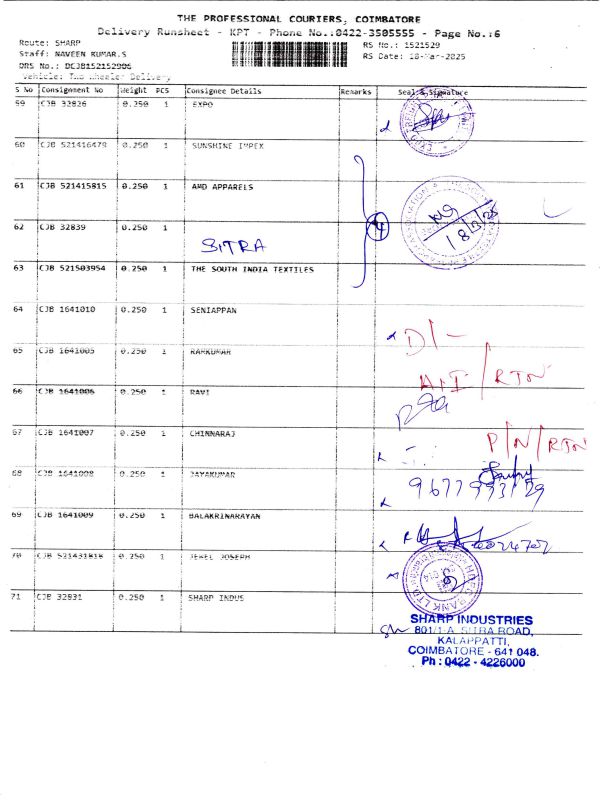 THE PROFESSIONAL COURIERS, COIMBATORE
Delivery Runsheet - KPT - Phone No.:0422-3505555 - Page No.:6
Route: SHARP
RS No.: 1521529
Staff: NAVEEN KUMAR.S
RS Date: 18-Mar-2025
DRS No.: DCJB152152906
Vehicle: Two Wheeler Delivery
S No Consignment No Weight PCS Consignee Details Remarks Seal & Signature
59 CJB 32826 0.250 1 EXPO
60 CJB 521416479 0.250 1 SUNSHINE IMPEX
61 CJB 521415815 0.250 1 AMD APPARELS
62 CJB 32839 0.250 1
SITRA
4
18/3/25
63 CJB 521503954 0.250 1 THE SOUTH INDIA TEXTILES
64 CJB 1641010 0.250 1 SENIAPPAN
D/-
65 CJB 1641005 0.250 1 RAMKUMAR
A.I/RTN
66 CJB 1641006 0.250 1 RAVI
67 CJB 1641007 0.250 1 CHINNARAJ
P/N/RTN
68 CJB 1641008 0.250 1 JAYAKUMAR
69 CJB 1641009 0.250 1 BALAKRINARAYAN
70 CJB 521431818 0.250 1 JEBEL JOSEPH
71 CJB 32831 0.250 1 SHARP INDUS
SHARP INDUSTRIES
801/1-A, SITRA ROAD,
KALAPPATTI,
COIMBATORE - 641 048.
Ph : 0422 - 4226000